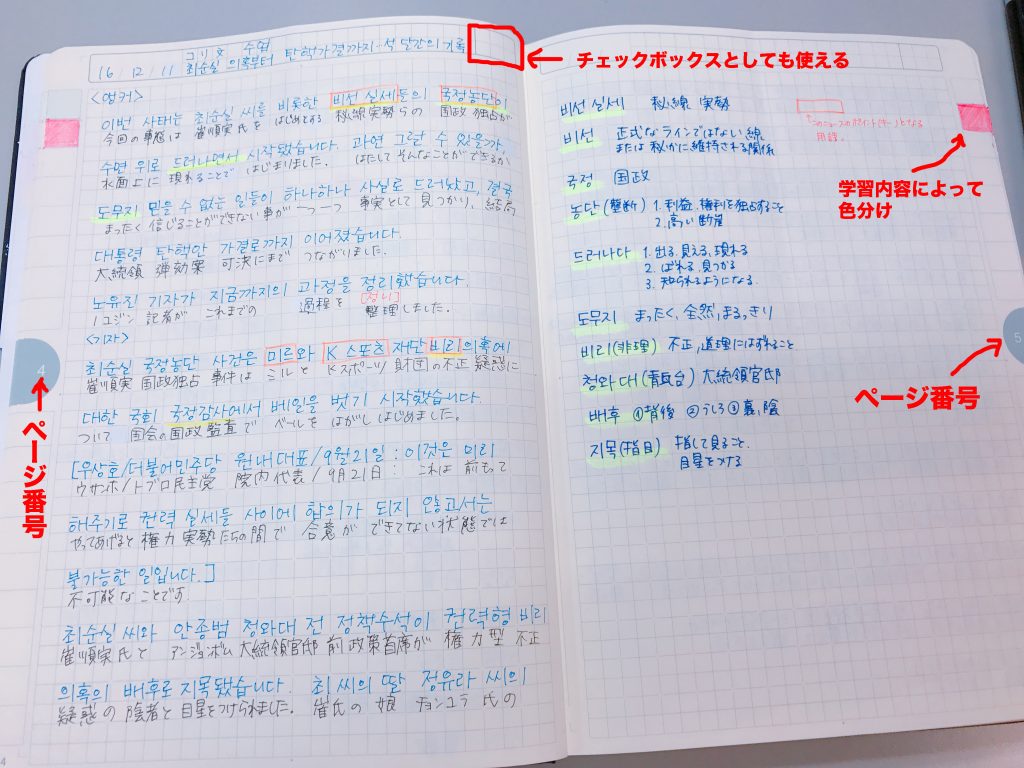 16 / 12 / 11
최순실 의혹부터 탄핵가결까지…석 달간의 기록
チェックボックスとしても使える
<앵커>
이번 사태는 최순실 씨를 비롯한 비선 실세들의 국정농단이
今回の事態は 崔順実氏を はじめとする 秘線実勢らの 国政独占が
수면 위로 드러나면서 시작됐습니다. 과연 그럴 수 있을까,
水面上に 現れることで はじまりました. はたして そんなことが できるか
도무지 믿을 수 없는 일들이 하나하나 사실로 드러났고, 결국
まったく 信じることができない 事が 一つ一つ 事実として 見つかり, 結局
대통령 탄핵안 가결로까지 이어졌습니다.
大統領 弾劾案 可決にまで つながりました.
노유진 기자가 지금까지의 과정을 정리했습니다.
ノユジン 記者が これまでの 過程を 整理しました.
[정니]
<기자>
최순실 국정농단 사건은 미르와 K스포츠 재단 비리의혹에
崔順実 国政独占 事件は ミルと Kスポーツ 財団の不正 疑惑に
대한 국회 국정감사에서 베일을 벗기 시작했습니다.
ついて 国会の国政監査で ベールを はがしはじめました.
[우상호/더불어민주당 원내대표/9월21일 : 이것은 미리
ウサンホ/トブロ民主党 院内代表/9月21日 : これは 前もって
해주기로 권력 실세들 사이에 합의가 되지 않고서는
やってあげると 権力 実勢たちの間で 合意が できてない状態では
불가능한 일입니다.]
不可能なことです.
최순실 씨와 안종범 청와대 전 정책수석이 권력형 비리
崔順実氏と アンジョンボム 大統領官邸 前 政策首席が 権力型 不正
의혹의 배후로 지목됐습니다. 최 씨의 딸 정유라 씨의
疑惑の 陰者と 目星をつけられました. 崔氏の 娘 チョンユラ 氏の
4
ページ番号
비선 실세 秘線 実勢
비선 正式なラインではない線
または 秘かに維持される関係
국정 国政
농단(壟断) 1. 利益, 権利を独占すること
2. 高い断崖
드러나다 1. 出る, 見える, 現れる
2. ばれる, 見つかる
3. 知られるようになる.
도무지 まったく, 全然, まるっきり
비리(非理) 不正, 道理にはずれること
청와대(青瓦台) 大統領官邸
배후 ①背後 ②うしろ ③裏, 陰
지목(指目) 指して見ること.
目星をつける
このニュースのポイント(キー)となる
用語.
学習内容によって
色分け
5
ページ番号